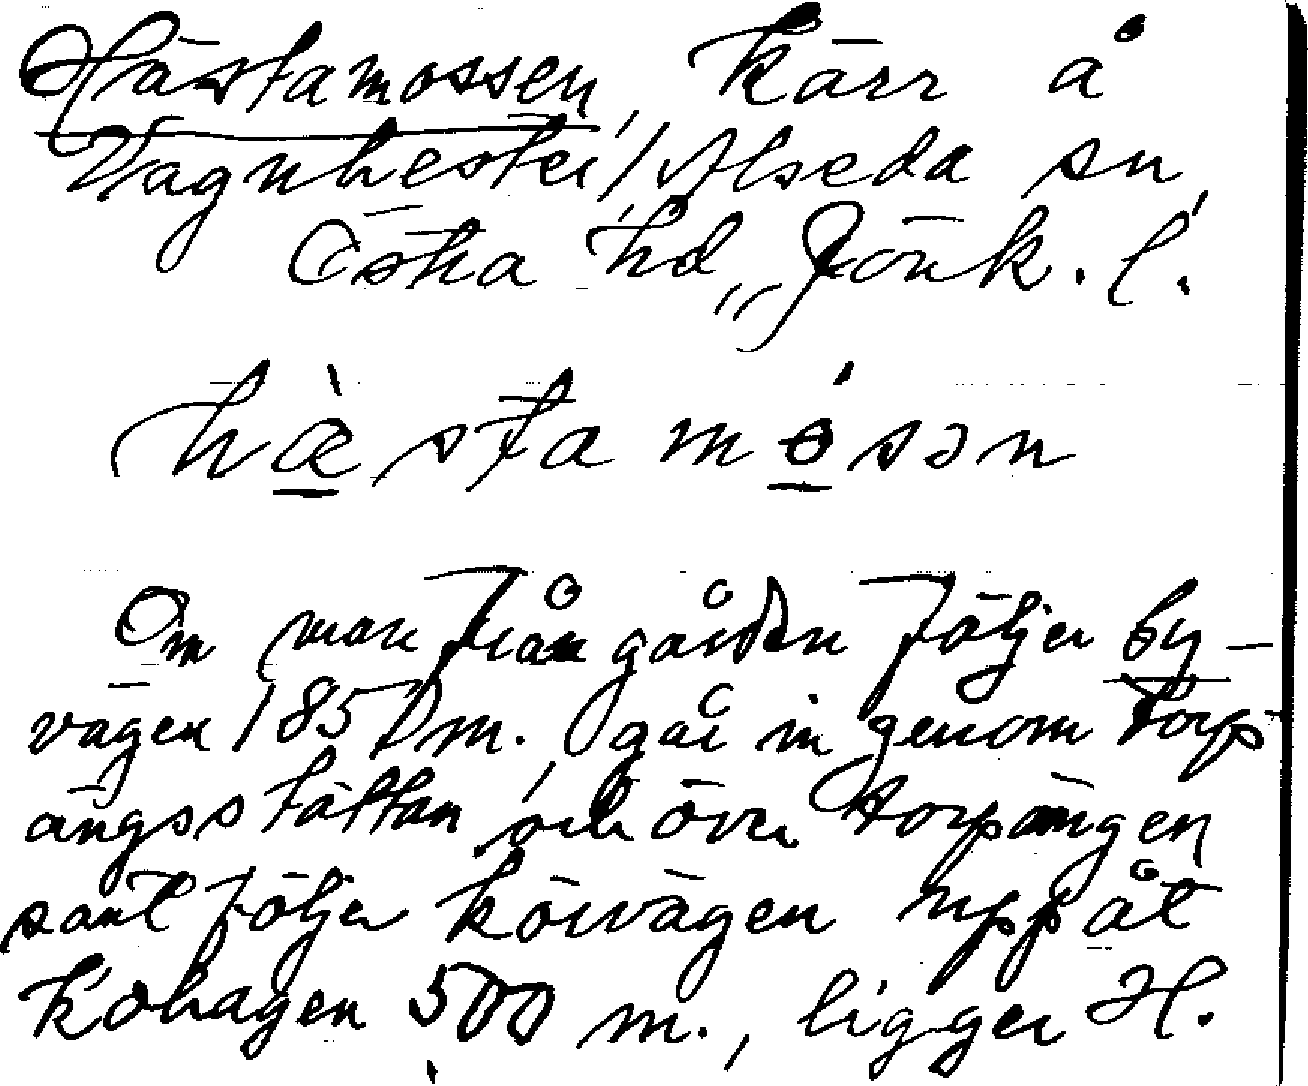 Hästamossen, kärr å
Vagnhester, Alseda sn,
Östra hd, Jönk. l.
hæ̀stamósən
Om man från gården följer by-
vägen 1850 m., går in genom torp-
ängsstättan, och över torpängen
samt följer körvägen uppåt
kohagen 500 m., ligger H.